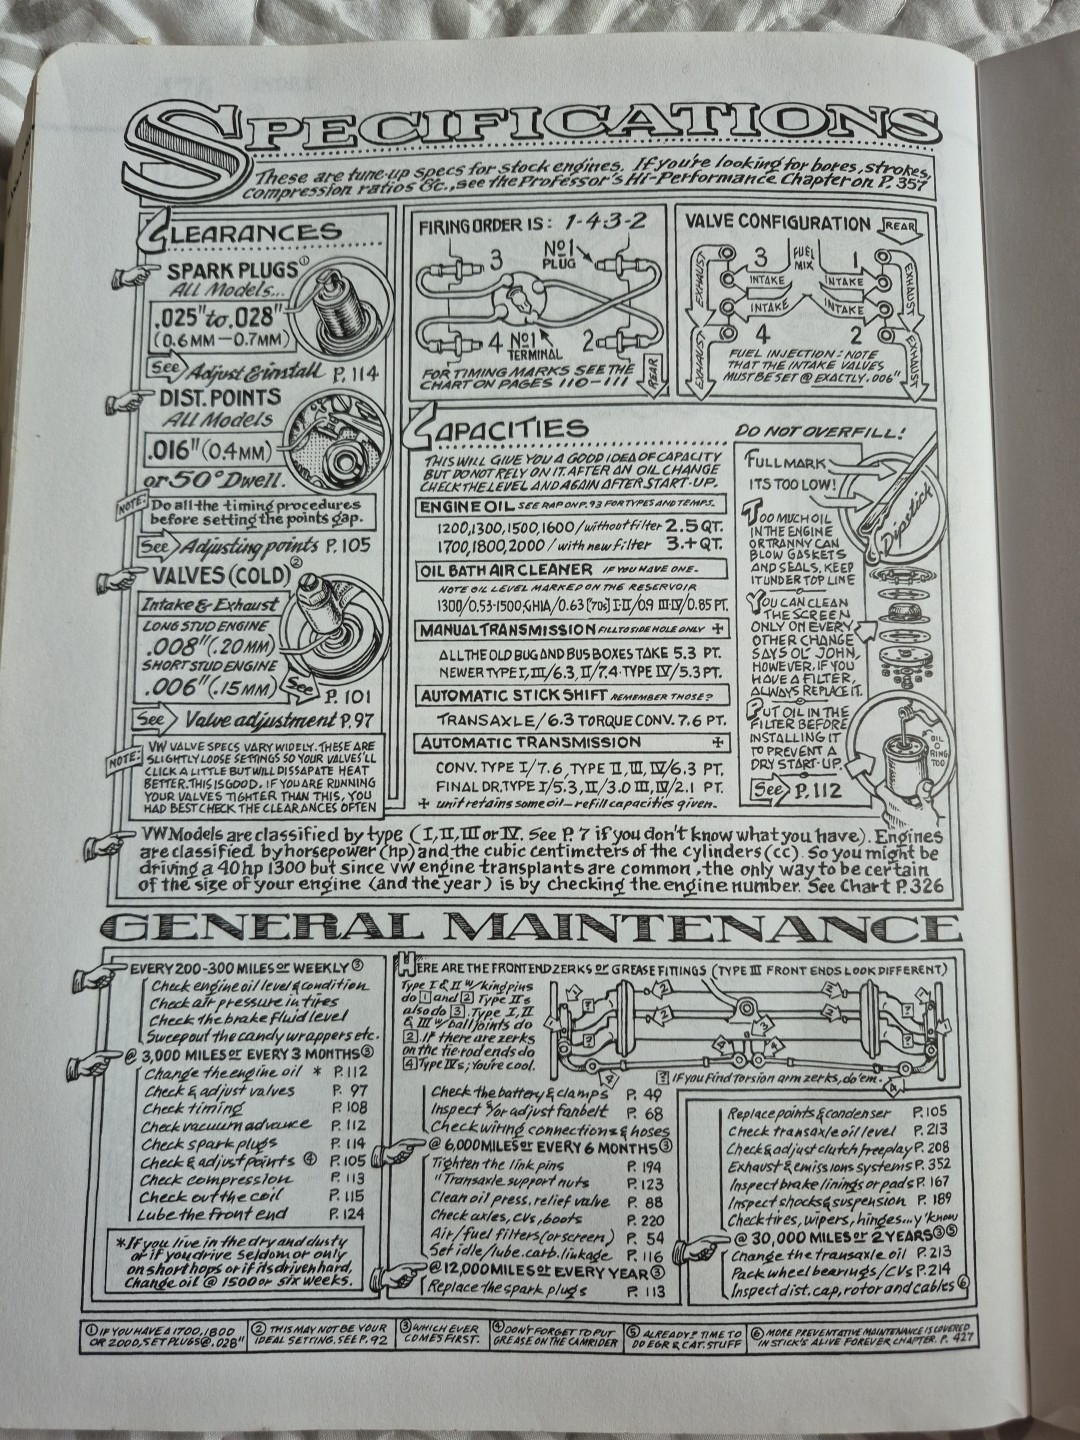 SPECIFICATIONS
These are tune-up specs for stock engines. If you're looking for bores, strokes,
compression ratios &c., see the Professor's Hi-Performance Chapter on P. 357
CLEARANCES
SPARK PLUGS①
ALL Models...
.025" to .028"
(0.6 MM — 0.7MM)
See Adjust & install P. 114
DIST. POINTS
ALL Models
.016" (0.4 MM)
or 50° Dwell.
NOTE: Do all the timing procedures
before setting the points gap.
See Adjusting points P. 105
VALVES (COLD)②
Intake & Exhaust
LONG STUD ENGINE
.008" (.20 MM)
SHORT STUD ENGINE
.006" (.15 MM)
See P. 101
See Valve adjustment P. 97
NOTE: VW VALVE SPECS VARY WIDELY. THESE ARE
SLIGHTLY LOOSE SETTINGS SO YOUR VALVES'LL
CLICK A LITTLE BUT WILL DISSAPATE HEAT
BETTER. THIS IS GOOD. IF YOU ARE RUNNING
YOUR VALVES TIGHTER THAN THIS, YOU
HAD BEST CHECK THE CLEARANCES OFTEN
FIRING ORDER IS: 1-4-3-2
3
Nº1 PLUG
4
Nº1 TERMINAL
2
REAR
FOR TIMING MARKS SEE THE
CHART ON PAGES 110-111
VALVE CONFIGURATION
REAR
3
FUEL MIX
1
EXHAUST
INTAKE
INTAKE
EXHAUST
INTAKE
INTAKE
4
2
EXHAUST
EXHAUST
FUEL INJECTION: NOTE
THAT THE INTAKE VALVES
MUST BE SET @ EXACTLY .006"
CAPACITIES
THIS WILL GIVE YOU A GOOD IDEA OF CAPACITY
BUT DO NOT RELY ON IT. AFTER AN OIL CHANGE
CHECK THE LEVEL AND AGAIN AFTER START-UP.
ENGINE OIL SEE RAP ON P. 93 FOR TYPES AND TEMPS.
1200,1300,1500,1600 / without filter 2.5 QT.
1700,1800,2000 / with new filter 3.+ QT.
OIL BATH AIR CLEANER IF YOU HAVE ONE.
NOTE OIL LEVEL MARKED ON THE RESERVOIR
1300/0.53-1500,GHIA/0.63 [70s] I-II/0.9 III-IV/0.85 PT.
MANUAL TRANSMISSION FILL TO SIDE HOLE ONLY ✢
ALL THE OLD BUG AND BUS BOXES TAKE 5.3 PT.
NEWER TYPE I,III/6.3, II/7.4 TYPE IV/5.3 PT.
AUTOMATIC STICK SHIFT REMEMBER THOSE?
TRANSAXLE/6.3 TORQUE CONV. 7.6 PT.
AUTOMATIC TRANSMISSION ✢
CONV. TYPE I/7.6, TYPE II, III, IV/6.3 PT.
FINAL DR. TYPE I/5.3, II/3.0 III, IV/2.1 PT.
✢ unit retains some oil — refill capacities given.
DO NOT OVERFILL!
FULL MARK
ITS TOO LOW!
Dipstick
TOO MUCH OIL
IN THE ENGINE
OR TRANNY CAN
BLOW GASKETS
AND SEALS, KEEP
IT UNDER TOP LINE
YOU CAN CLEAN
THE SCREEN
ONLY ON EVERY
OTHER CHANGE
SAYS OL' JOHN,
HOWEVER, IF YOU
HAVE A FILTER,
ALWAYS REPLACE IT.
PUT OIL IN THE
FILTER BEFORE
INSTALLING IT
TO PREVENT A
DRY START-UP.
OIL O RING TOO
See P. 112
VW Models are classified by type (I, II, III or IV. See P. 7 if you don't know what you have). Engines
are classified by horsepower (hp) and the cubic centimeters of the cylinders (cc). So you might be
driving a 40 hp 1300 but since VW engine transplants are common, the only way to be certain
of the size of your engine (and the year) is by checking the engine number. See Chart P. 326
GENERAL MAINTENANCE
EVERY 200-300 MILES or WEEKLY③
Check engine oil level & condition
Check air pressure in tires
Check the brake fluid level
Sweep out the candy wrappers etc.
@ 3,000 MILES or EVERY 3 MONTHS③
Change the engine oil * P. 112
Check & adjust valves P. 97
Check timing P. 108
Check vacuum advance P. 112
Check spark plugs P. 114
Check & adjust points ④ P. 105
Check compression P. 113
Check out the coil P. 115
Lube the front end P. 124
*If you live in the dry and dusty
or if you drive seldom or only
on short hops or if its driven hard,
Change oil @ 1500 or six weeks.
HERE ARE THE FRONT END ZERKS or GREASE FITTINGS (TYPE III FRONT ENDS LOOK DIFFERENT)
Type I & II w/ kingpins
do 1 and 2 Type II's
also do 3. Type I, II
& III w/ ball joints do
2. If there are zerks
on the tie-rod ends do
4 Type IVs; You're cool.
? IF YOU FIND TORSION ARM ZERKS, do 'em.
Check the battery & clamps P. 49
Inspect &/or adjust fanbelt P. 68
Check wiring connections & hoses
@ 6,000 MILES or EVERY 6 MONTHS③
Tighten the link pins P. 194
" Transaxle support nuts P. 123
Clean oil press. relief valve P. 88
Check axles, CVs, boots P. 220
Air/fuel filters (or screen) P. 54
Set idle/lube. carb. linkage P. 116
@ 12,000 MILES or EVERY YEAR③
Replace the spark plugs P. 113
Replace points & condenser P. 105
Check transaxle oil level P. 213
Check & adjust clutch freeplay P. 208
Exhaust & emissions systems P. 352
Inspect brake linings or pads P. 167
Inspect shocks & suspension P. 189
Check tires, wipers, hinges...y'know
@ 30,000 MILES or 2 YEARS③⑤
Change the transaxle oil P. 213
Pack wheel bearings/CVs P. 214
Inspect dist. cap, rotor and cables⑥
① IF YOU HAVE A 1700, 1800
OR 2000, SET PLUGS @ .028"
② THIS MAY NOT BE YOUR
IDEAL SETTING. SEE P. 92
③ WHICH EVER
COMES FIRST.
④ DON'T FORGET TO PUT
GREASE ON THE CAM RIDER
⑤ ALREADY? TIME TO
DO EGR & CAT. STUFF
⑥ MORE PREVENTATIVE MAINTENANCE IS COVERED
IN STICK'S ALIVE FOREVER CHAPTER. P. 427